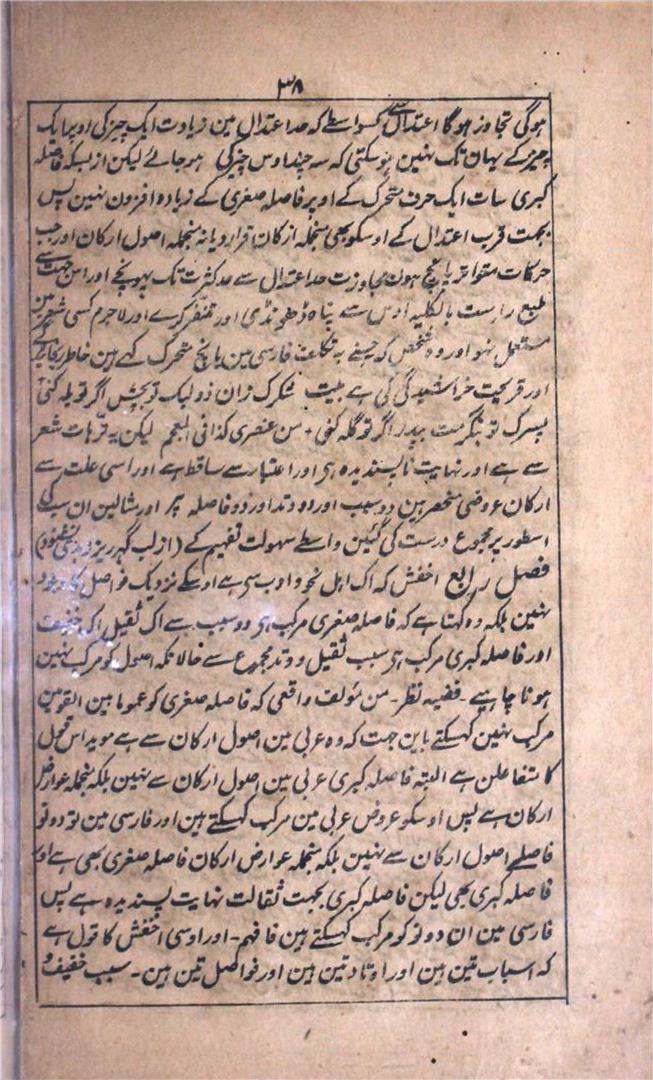 ٣٨
ہوگی تجاوز ہوگا اعتدال سے کسواسطے کہ حد اعتدال مین زیادت ایک چیز کی اوپر ایک
چیز کے یہان تک نہین ہوسکتی کہ سہ چند اوس چیز کی ہوجائے لیکن ازبسکہ فاصلہ
کبری سات ایک حرف متحرک کے اوپر فاصلہ صغری کے زیادہ افزون نہین پس
بجہت قرب اعتدال کے اوسکو بھی منجملہ ارکان قرار دیا نہ منجملہ اصول ارکان اور جب
حرکات متواتر پانچ ہون مجاوزت حد اعتدال سے حد کثرت تک پہونچے اور اس جہت سے
طبع راست بالکلیہ اوس سے پناہ ڈھونڈی اور متنفر کرے اور لاجرم کسی شعر مین
مستعمل نہو اور وہ شخص کہ جسنے بہ تکلف فارسی مین پانچ متحرک کہے ہین خاطر
اور قریحت خراشیدگی کی ہے بیت شکرک زان دو لبک تو بچنش اگر تو یلہ کنی
پسرک تو بنگرمت بپدر اگر تو گلہ کنی + من عنصری کذا فی المعجم لیکن یہ ترہات شعر
سے ہے اور نہایت ناپسندیدہ ہی اور اعتبار سے ساقط ہے اور اسی علت سے
ارکان عروضی منحصر ہین دو سبب اور دو وتد اور دو فاصلہ پر اور مثالین ان سب کی
اسطور پر مجموع درست کی گئین واسطے سہولت تفہیم کے (از لب گہر ریزد
فصل رابع اخفش کہ اک اہل نحو و ادب سی ہے اوسکے نزدیک فواصل کا وجود
نہین بلکہ وہ کہتا ہے کہ فاصلہ صغری مرکب ہی دو سبب سے اک ثقیل اک خفیف
اور فاصلہ کبری مرکب ہی سبب ثقیل و وتد مجموع سے حالانکہ اصول کو مرکب نہین
ہونا چاہیے - ففیہ نظر - من مؤلف واقعی کہ فاصلہ صغری کو عموما بین القومین
مرکب نہین کہسکتے باین جہت کہ وہ عربی مین اصول ارکان سے ہے موید اس قول
کا متفاعلن ہے البتہ فاصلہ کبری عربی مین اصول ارکان سے نہین بلکہ منجملہ عوارض
ارکان ہے پس اوسکو عروض عربی مین مرکب کہسکتے ہین اور فارسی مین تو دونو
فاصلے اصول ارکان سے نہین بلکہ منجملہ عوارض ارکان فاصلہ صغری بھی ہے اور
فاصلہ کبری بھی لیکن فاصلہ کبری بجہت ثقالت نہایت پسندیدہ ہے پس
فارسی مین ان دونو کو مرکب کہسکتے ہین فافہم - اور اوسی اخفش کا قول ہے
کہ اسباب تین ہین اور اوتاد تین ہین اور فواصل تین ہین - سبب خفیف و